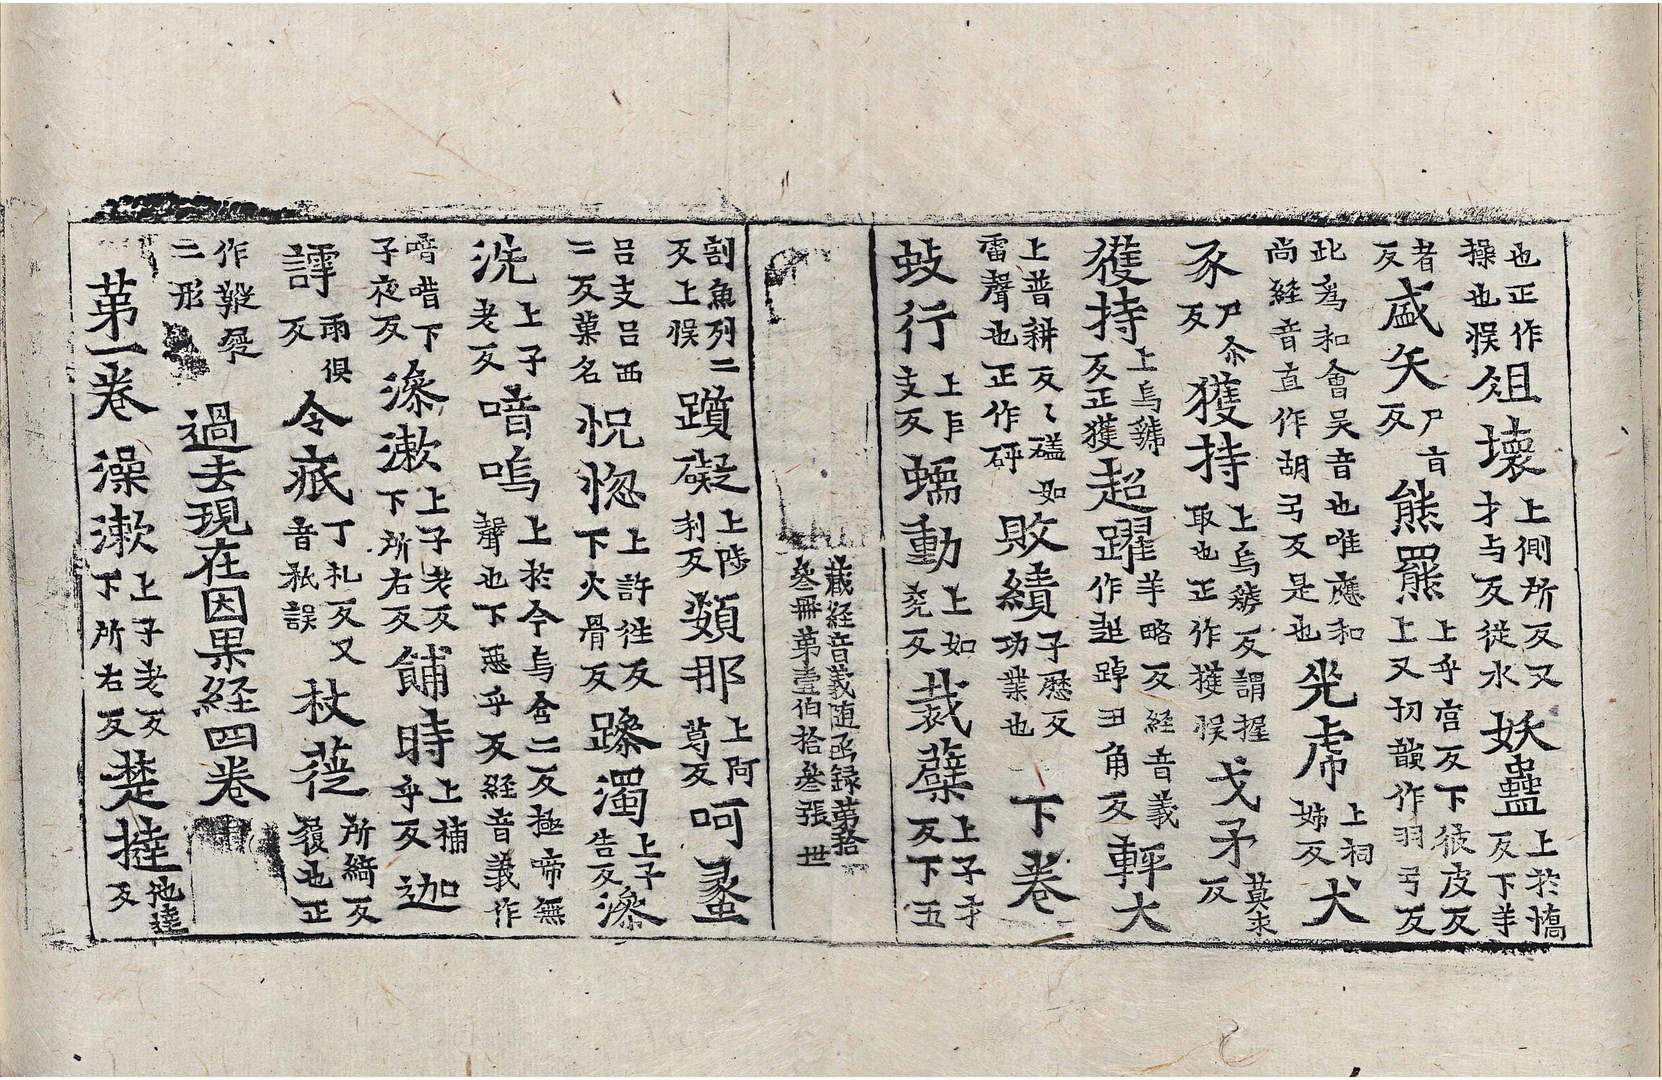 也正作操也悮俎壞上側所反又才与反從水妖蠱上於憍反下羊
者反盛矢尸旨反熊羆上乎宫反下彼皮反上又㓞韻作羽弓反
此爲和會吴音也唯應和尚経音直作胡弓反是也兕虎上祠姊反犬
豕尸尒反獲持上烏虢反謂握取也正作擭悮戈矛莫求反
獲持上烏虢反正獲超躍羊略反経音義作趠踔丑角反軯大
上普耕反〻礚如雷聲也正作砰敗績子歷反功業也下卷
蚑行上巨支反蠕動上如兖反栽蘖上子才反下五
藏経音義随函録第拾叁冊第壹伯拾叁張 世
割魚列二反上悮躓礙上陟利反頞那上阿葛反呵蠡
吕支吕西二反菓名怳惚上許往反下火骨反躁濁上子告反澡
洗上子老反喑嗚上於今烏含二反極啼無聲也下惡乎反経音義作
喑唶下子夜反澡漱上子老反下所右反餔時上補乎反迦
諄雨俱反令底丁礼反又音袛誤杖蓰所綺反履也正
作 二形 過去現在因果経四卷
第一卷 澡漱上子老反下所右反楚撻他達反